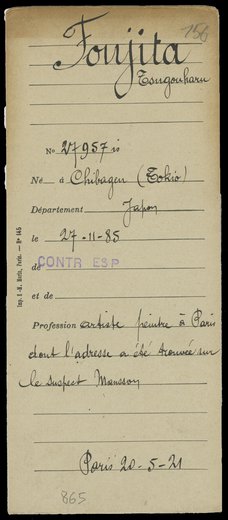 156
Foujita
Tsugouharu
No 27957 is
Né à Chibagen (Tokio)
Département Japon
le 27-11-85
de CONTR ESP
et de
Profession artiste peintre à Paris
dont l'adresse a été trouvée sur
le suspect Mansson
Paris 20-5-21
865
Imp. J.-M. Paris. — Nº 145